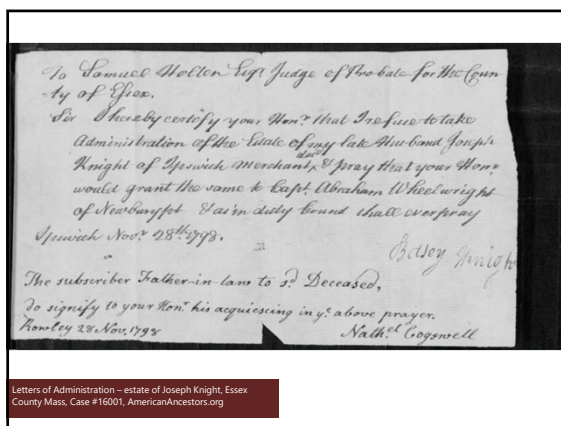 To Samuel Holten Esqr. Judge of Probate for the Coun
-ty of Essex.
Sir I hereby certify your Honr. that I refuse to take
Administration of the Estate of my late Husband Joseph
decd.
Knight of Ipswich merchant, & pray that your Honr.
would grant the same to Capt. Abraham Wheelwright
of Newburypt & as in duty bound shall ever pray
Ipswich Novr. 28th. 1798.
Betsey Knigh
The subscriber Father-in-law to sd. Deceased,
do signify to your Honr. his acquiescing in ye. above prayer.
Rowley 28 Nov. 1798
Nathel. Cogswell
Letters of Administration – estate of Joseph Knight, Essex
County Mass, Case #16001, AmericanAncestors.org